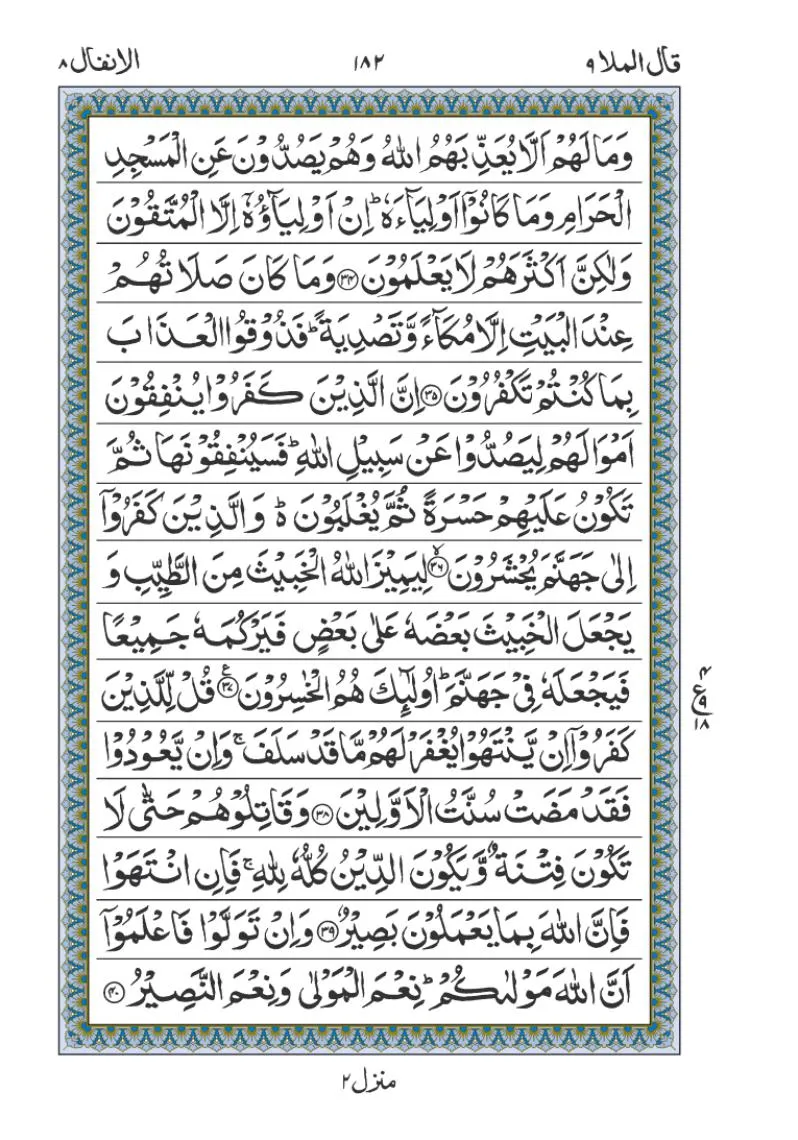 قال الملا ۹
۱۸۲
الانفال ۸
وَمَا لَهُمْ اَلَّا يُعَذِّبَهُمُ اللّٰهُ وَهُمْ يَصُدُّوْنَ عَنِ الْمَسْجِدِ
الْحَرَامِ وَمَا كَانُوْٓا اَوْلِيَآءَهٗ ؕ اِنْ اَوْلِيَآؤُهٗٓ اِلَّا الْمُتَّقُوْنَ
وَلٰكِنَّ اَكْثَرَهُمْ لَا يَعْلَمُوْنَ ۝۳۴ وَمَا كَانَ صَلَاتُهُمْ
عِنْدَ الْبَيْتِ اِلَّا مُكَآءً وَّتَصْدِيَةً ؕ فَذُوْقُوا الْعَذَابَ
بِمَا كُنْتُمْ تَكْفُرُوْنَ ۝۳۵ اِنَّ الَّذِيْنَ كَفَرُوْا يُنْفِقُوْنَ
اَمْوَالَهُمْ لِيَصُدُّوْا عَنْ سَبِيْلِ اللّٰهِ ؕ فَسَيُنْفِقُوْنَهَا ثُمَّ
تَكُوْنُ عَلَيْهِمْ حَسْرَةً ثُمَّ يُغْلَبُوْنَ ۬ؕ وَالَّذِيْنَ كَفَرُوْٓا
اِلٰى جَهَنَّمَ يُحْشَرُوْنَ ۝۳۶ۙ لِيَمِيْزَ اللّٰهُ الْخَبِيْثَ مِنَ الطَّيِّبِ وَ
يَجْعَلَ الْخَبِيْثَ بَعْضَهٗ عَلٰى بَعْضٍ فَيَرْكُمَهٗ جَمِيْعًا
فَيَجْعَلَهٗ فِيْ جَهَنَّمَ ؕ اُولٰٓئِكَ هُمُ الْخٰسِرُوْنَ ۝۳۷ع قُلْ لِّلَّذِيْنَ
كَفَرُوْٓا اِنْ يَّنْتَهُوْا يُغْفَرْ لَهُمْ مَّا قَدْ سَلَفَ ۚ وَاِنْ يَّعُوْدُوْا
فَقَدْ مَضَتْ سُنَّتُ الْاَوَّلِيْنَ ۝۳۸ وَقَاتِلُوْهُمْ حَتّٰى لَا
تَكُوْنَ فِتْنَةٌ وَّيَكُوْنَ الدِّيْنُ كُلُّهٗ لِلّٰهِ ۚ فَاِنِ انْتَهَوْا
فَاِنَّ اللّٰهَ بِمَا يَعْمَلُوْنَ بَصِيْرٌ ۝۳۹ وَاِنْ تَوَلَّوْا فَاعْلَمُوْٓا
اَنَّ اللّٰهَ مَوْلٰىكُمْ ؕ نِعْمَ الْمَوْلٰى وَنِعْمَ النَّصِيْرُ ۝۴۰
۴
ع ۹
۱۸
منزل ۲